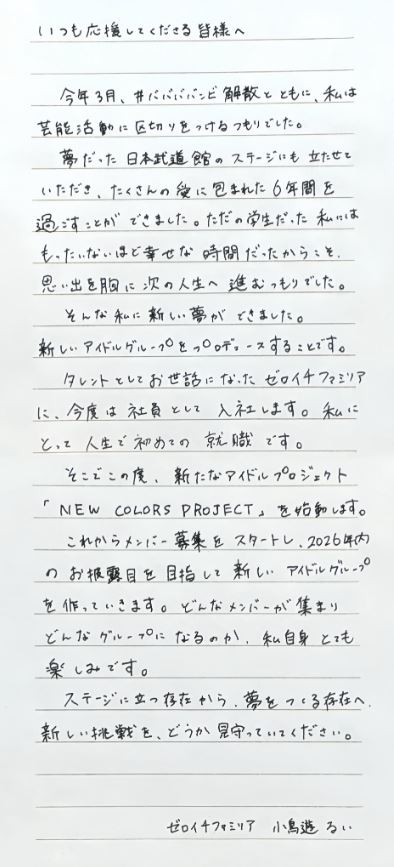 いつも応援してくださる皆様へ
今年3月、#ババババンビ解散とともに、私は
芸能活動に区切りをつけるつもりでした。
夢だった日本武道館のステージにも立たせて
いただき、たくさんの愛に包まれた6年間を
過ごすことができました。ただの学生だった私には
もったいないほど幸せな時間だったからこそ、
思い出を胸に次の人生へ進むつもりでした。
そんな私に新しい夢ができました。
新しいアイドルグループをプロデュースすることです。
タレントとしてお世話になったゼロイチファミリア
に、今度は社員として入社します。私に
とって人生で初めての就職です。
そこでこの度、新たなアイドルプロジェクト
「NEW COLORS PROJECT」を始動します。
これからメンバー募集をスタートし、2026年内
のお披露目を目指して新しいアイドルグループ
を作っていきます。どんなメンバーが集まり
どんなグループになるのか、私自身とても
楽しみです。
ステージに立つ存在から、夢をつくる存在へ。
新しい挑戦を、どうか見守っていてください。
ゼロイチファミリア 小鳥遊るい